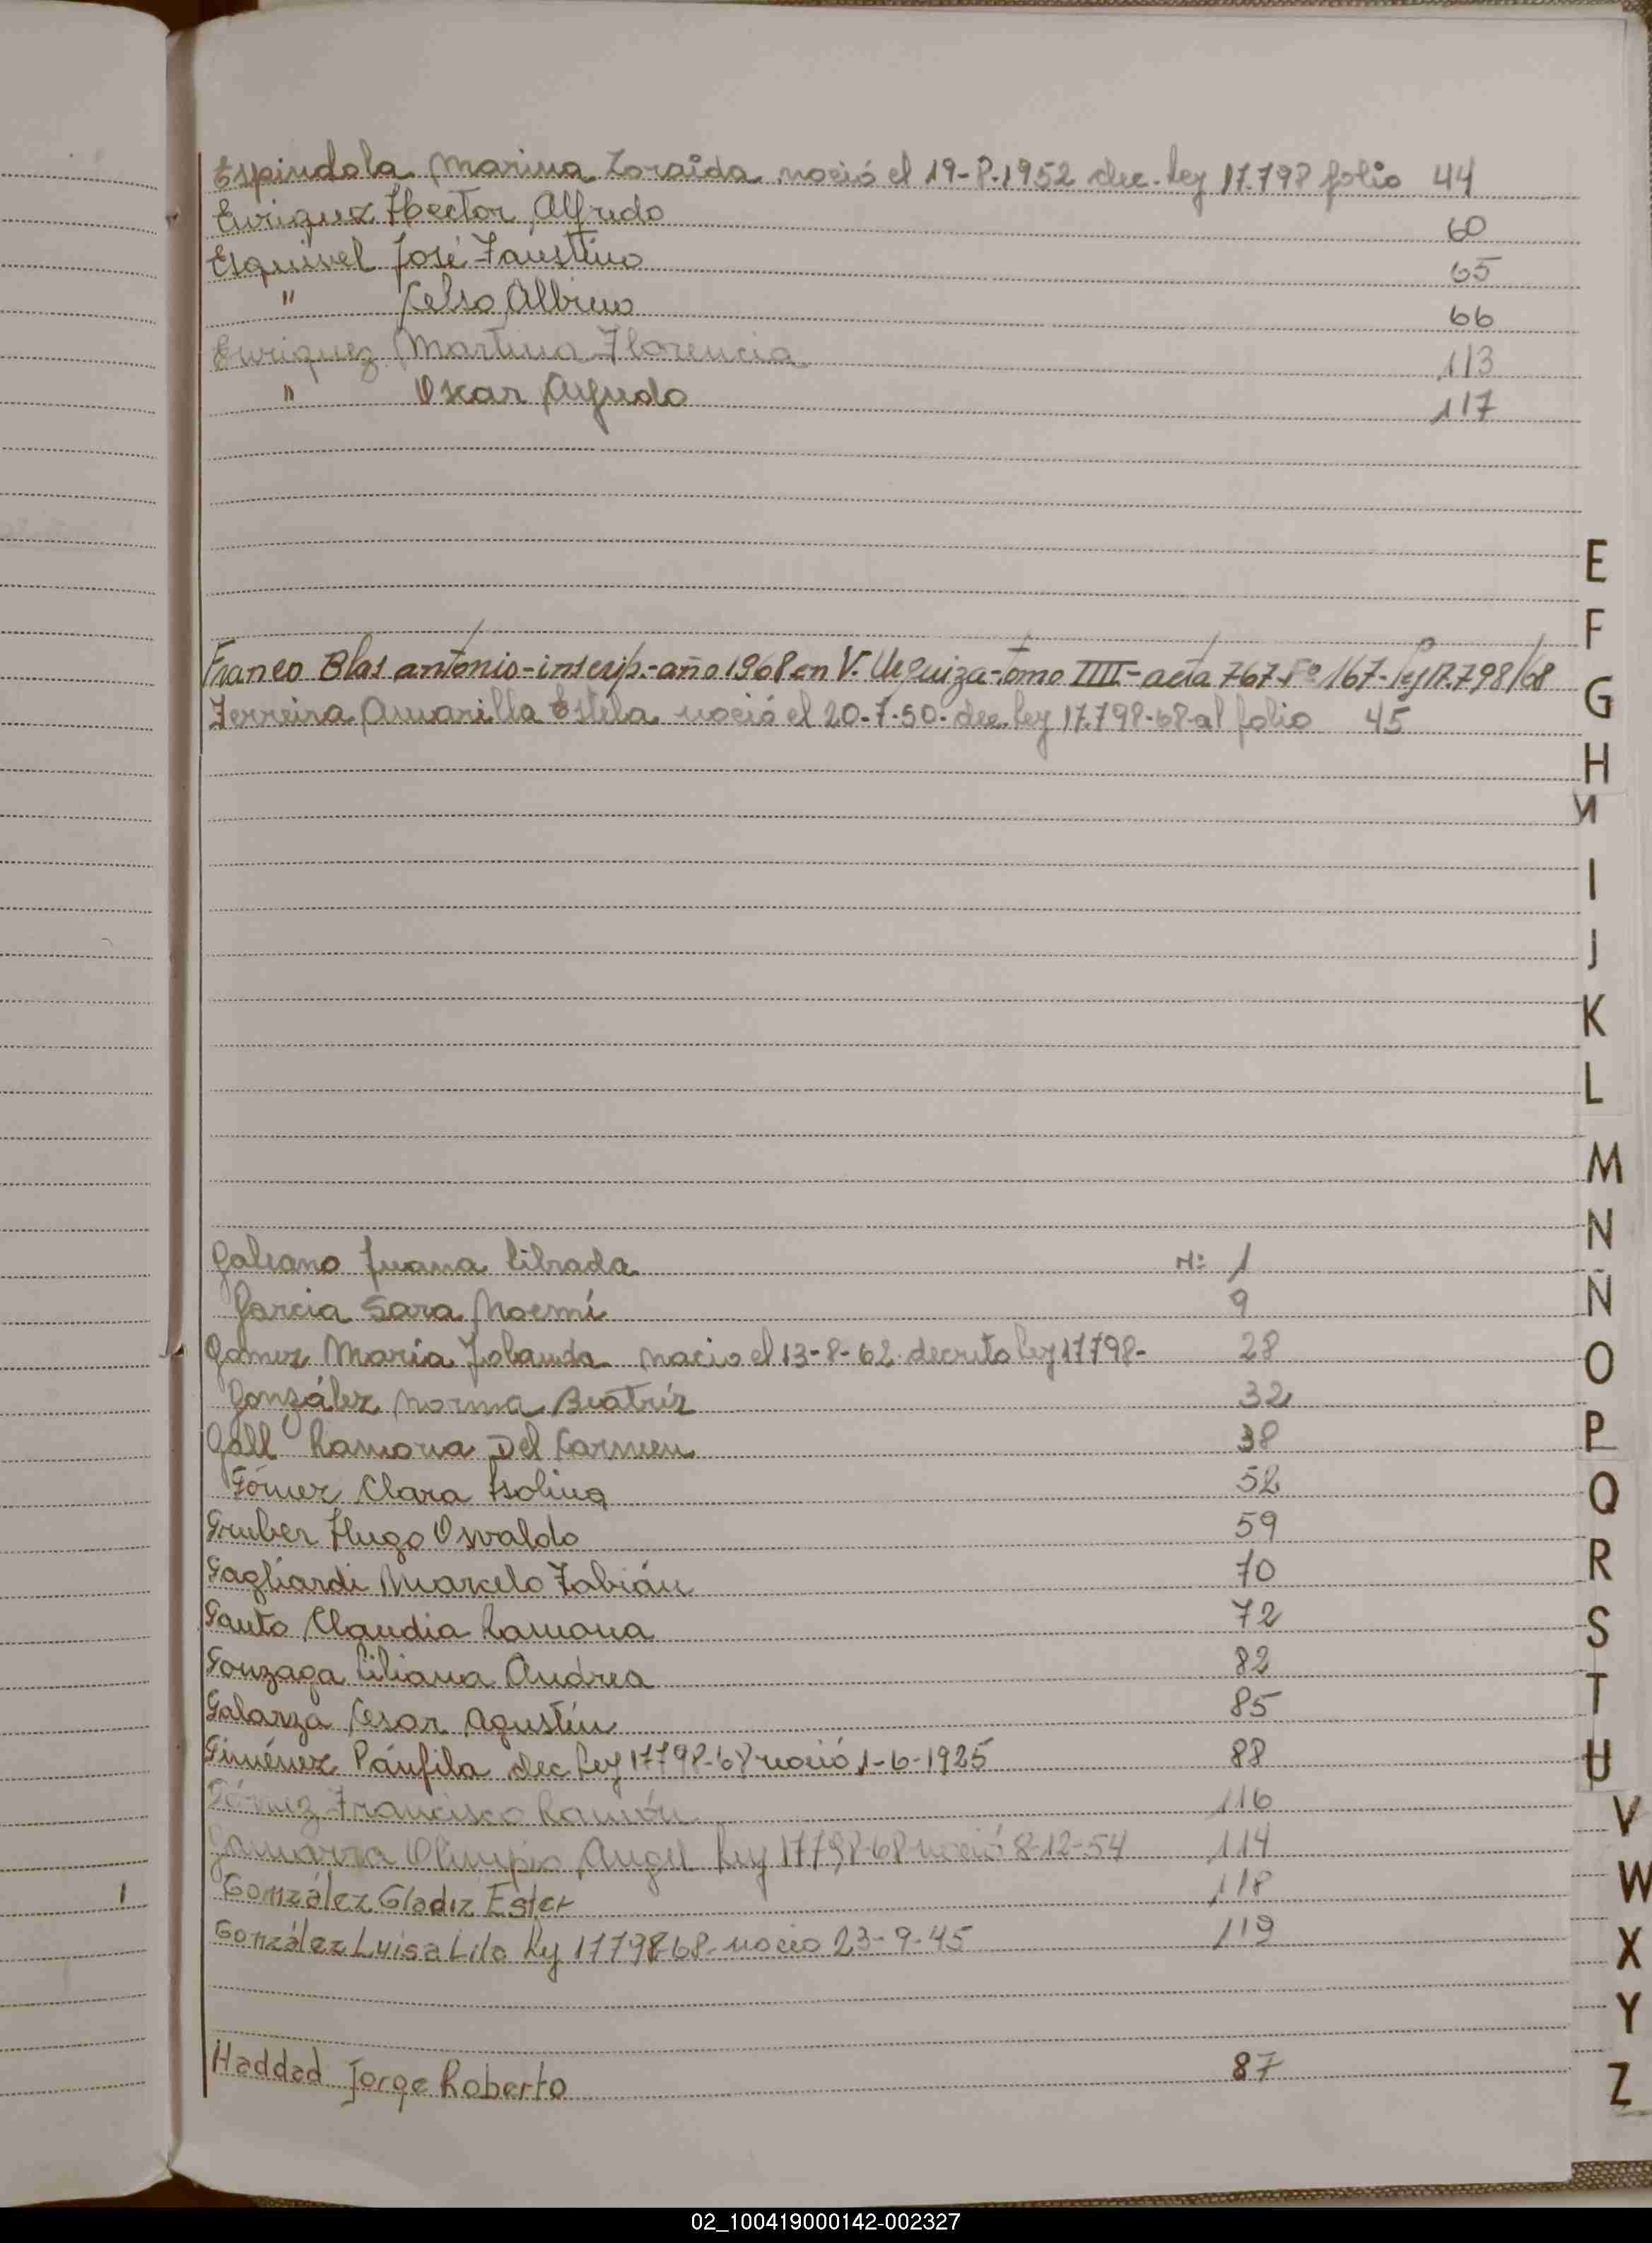 Espindola Marina Zoraida nació el 19-8-1952 dec. ley 17.798 folio 44
Enriquez Hector Alfredo 60
Esquivel José Faustino 65
" Celso Albino 66
Enriquez Martina Florencia 113
" Oscar Alfredo 117
Franco Blas antonio-inscrip.-año 1968 en V. Urquiza-tomo IIII-acta 767-Fº 167-ley 17.798/68
Ferreira Amarilla Estela nació el 20-7-50-dec. ley 17.798-68-al folio 45
Galeano Juana Librada Nº 1
Garcia Sara Noemí 9
Gómez María Yolanda nacio el 13-8-62 decreto ley 17798- 28
González Norma Beatríz 32
Gall Ramona Del Carmen 38
Gómez Clara Isolina 52
Gruber Hugo Osvaldo 59
Gagliardi Marcelo Fabián 70
Gauto Claudia Ramona 72
Gonzaga Liliana Andrea 82
Galarza Cesar Agustín 85
Giménez Pánfila dec ley 17798-68 nació 1-6-1925 88
Gómez Francisco Ramón 116
Gamarra Olimpio Angel ley 17798-68 nació 8-12-54 114
González Gladiz Ester 118
González Luisa Lila ley 17798-68- nacio 23-9-45 119
Haddad Jorge Roberto 87
E
F
G
H
I
J
K
L
M
N
Ñ
O
P
Q
R
S
T
U
V
W
X
Y
Z
02_100419000142-002327